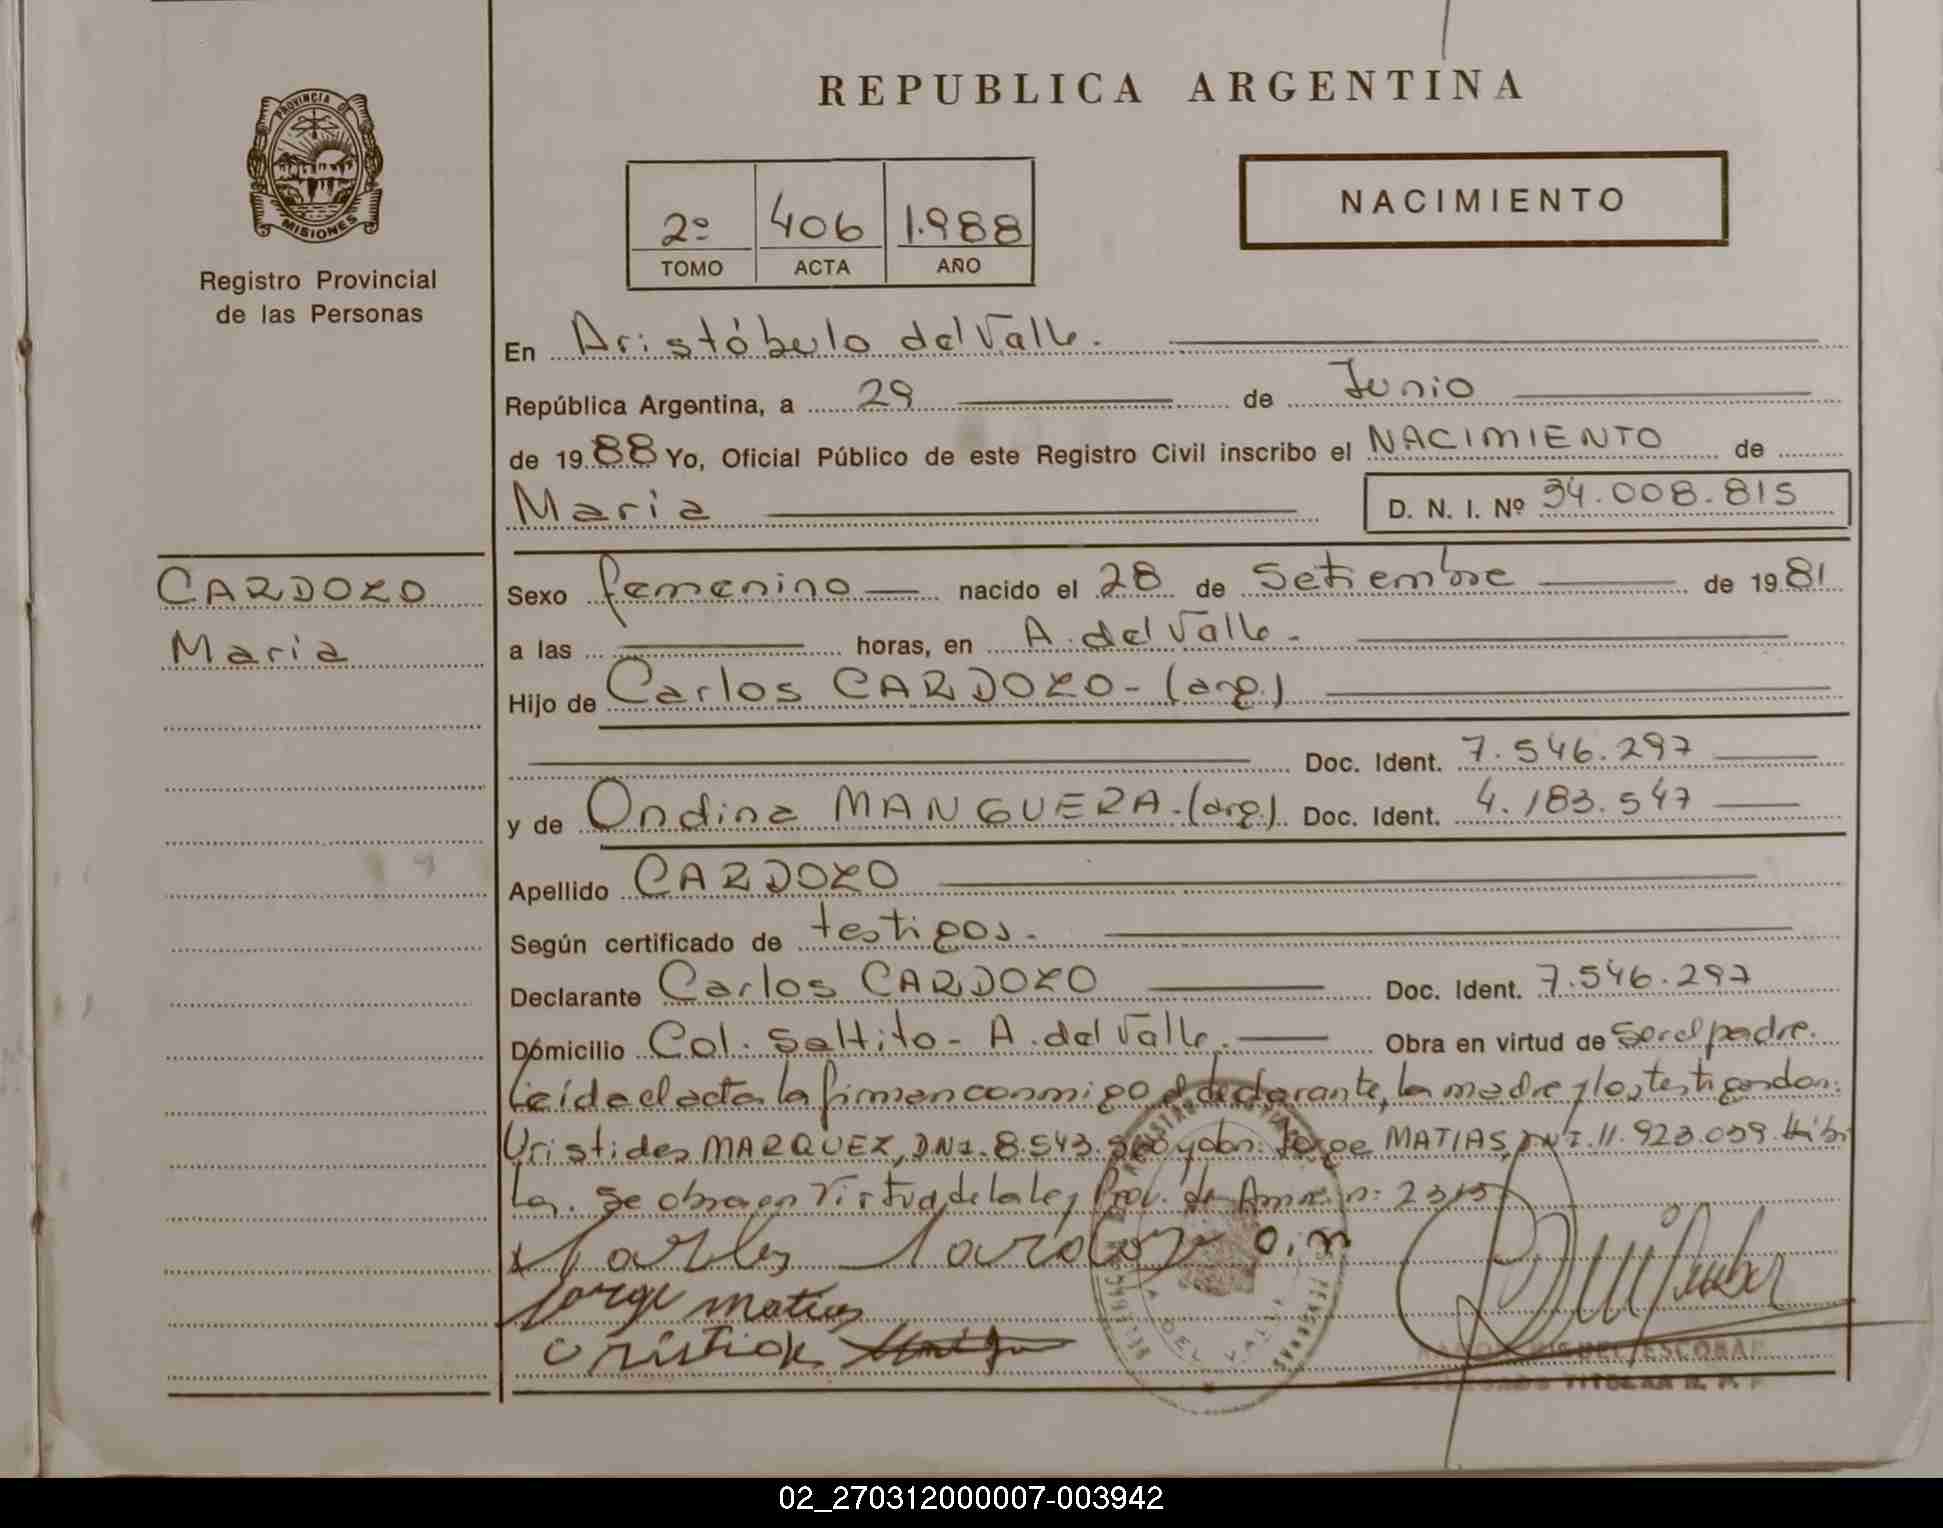 REPUBLICA ARGENTINA
PROVINCIA DE
MISIONES
Registro Provincial
de las Personas
2º 406 1.988
TOMO ACTA AÑO
NACIMIENTO
En Aristóbulo del Valle.
República Argentina, a 29 de Junio
de 1988 Yo, Oficial Público de este Registro Civil inscribo el NACIMIENTO de
María D. N. I. Nº 34.008.815
CARDOZO
María
Sexo femenino nacido el 28 de Setiembre de 1981
a las horas, en A. del Valle.
Hijo de Carlos CARDOZO - (arg.)
Doc. Ident. 7.546.297
y de Ondina MANGUERA. (arg.) Doc. Ident. 4.183.547
Apellido CARDOZO
Según certificado de testigos.
Declarante Carlos CARDOZO Doc. Ident. 7.546.297
Domicilio Col. Saltito - A. del Valle. Obra en virtud de ser el padre.
Leída el acta la firman conmigo el declarante, la madre y los testigos don:
Cristides MARQUEZ, DNI. 8.543. y don: Jorge MATIAS, DNI. 11.923.039. Hábi
les. Se obra en virtud de la ley Prov. de Amn. n: 2315
Carlos Cardozo O. M
Jorge matias
Cristide
DEL VALLE
ESCOBAR
TITULAR R. P. P
02_270312000007-003942